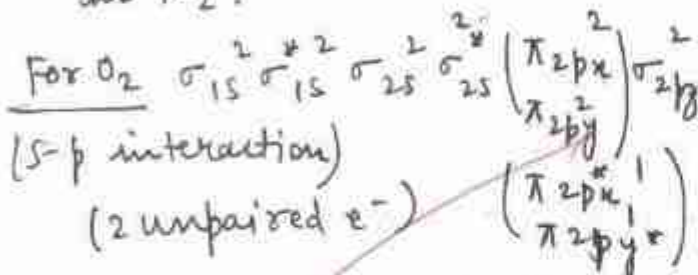 For O₂ σ₁ₛ² σ*₁ₛ² σ₂ₛ² σ₂ₛ²* (π₂ₚₓ² π₂ₚᵧ²) σ₂ₚz²
(S-p interaction)
(2 unpaired e⁻) (π2pₓ*¹ π2pᵧ¹*)